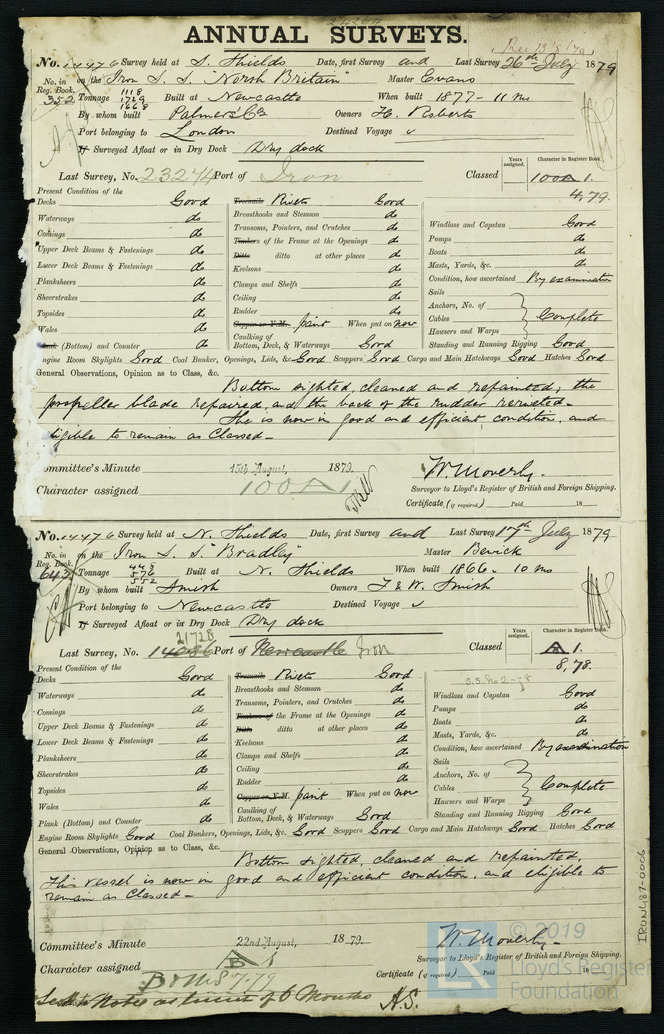 ANNUAL SURVEYS.
Rec 13/8/79
No. 14476 Survey held at S. Shields Date, first Survey and Last Survey 26th July 1879
No. in Reg. Book. 352 on the Iron S. S. "North Britain" Master Evans
Tonnage 1118 1729 1668 Built at Newcastle When built 1877 - 11 mo
By whom built Palmers Co Owners H. Roberts
Port belonging to London Destined Voyage
If Surveyed Afloat or in Dry Dock Dry dock
Last Survey, No. 23274 Port of Iron Classed
Years assigned. Character in Register Book.
100 A 1.
4,79.
Present Condition of the
Decks Good
Waterways do
Comings do
Upper Deck Beams & Fastenings do
Lower Deck Beams & Fastenings do
Planksheers do
Sheerstrakes do
Topsides do
Wales do
Plank (Bottom) and Counter do
Treenails Rivets Good
Breasthooks and Stemson do
Transoms, Pointers, and Crutches do
Timbers of the Frame at the Openings do
Ditto ditto at other places do
Keelsons do
Clamps and Shelfs do
Ceiling do
Rudder do
Copper or Y.M. paint When put on now
Caulking of Bottom, Deck, & Waterways Good
Windlass and Capstan Good
Pumps do
Boats do
Masts, Yards, &c. do
Condition, how ascertained By examination
Sails
Anchors, No. of
Cables
Hawsers and Warps
Complete
Standing and Running Rigging Good
ngine Room Skylights Good Coal Bunker, Openings, Lids, &c. Good Scuppers Good Cargo and Main Hatchways Good Hatches Good
General Observations, Opinion as to Class, &c.
Bottom sighted, cleaned and repainted, the
propeller blade repaired, and the back of the rudder reriveted.
She is now in good and efficient condition, and
eligible to remain as Classed
ommittee's Minute 15th August, 1879.
Character assigned 100 A 1
W. Moverly.
Surveyor to Lloyd's Register of British and Foreign Shipping.
Certificate (if required) Paid 18
No. 14476 Survey held at N. Shields Date, first Survey and Last Survey 17th July 1879
No. in Reg. Book. 642 on the Iron S. S. "Bradley" Master Berick
Tonnage 448 576 552 Built at N. Shields When built 1866 - 10 mo
By whom built Smith Owners T & W. Smith
Port belonging to Newcastle Destined Voyage
If Surveyed Afloat or in Dry Dock Dry dock
21728
Last Survey, No. 14086 Port of Newcastle Iron Classed
Years assigned. Character in Register Book.
A 1.
8,78.
S.S. No 2-78
Present Condition of the
Decks Good
Waterways do
Comings do
Upper Deck Beams & Fastenings do
Lower Deck Beams & Fastenings do
Planksheers do
Sheerstrakes do
Topsides do
Wales do
Plank (Bottom) and Counter do
Treenails Rivets Good
Breasthooks and Stemson do
Transoms, Pointers, and Crutches do
Timbers of the Frame at the Openings do
Ditto ditto at other places do
Keelsons do
Clamps and Shelfs do
Ceiling do
Rudder do
Copper or Y.M. paint When put on now
Caulking of Bottom, Deck, & Waterways Good
Windlass and Capstan Good
Pumps do
Boats do
Masts, Yards, &c. do
Condition, how ascertained By examination
Sails
Anchors, No. of
Cables
Hawsers and Warps
Complete
Standing and Running Rigging Good
Engine Room Skylights Good Coal Bunkers, Openings, Lids, &c. Good Scuppers Good Cargo and Main Hatchways Good Hatches Good
General Observations, Opinion as to Class, &c.
Bottom sighted, cleaned and repainted.
This vessel is now in good and efficient condition, and eligible to
remain as Classed
Committee's Minute 22nd August, 1879.
Character assigned A 1
B & MS 7.79
W. Moverly
Surveyor to Lloyd's Register of British and Foreign Shipping.
Certificate (if required) Paid 18
as limit of 6 Months
A.S.
IRON487-0006
© 2019
Lloyd's Register
Foundation